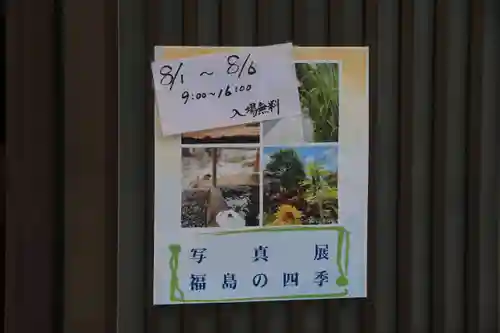 8/1 ～ 8/6
9:00～16:00
入場無料
写真展
福島の四季